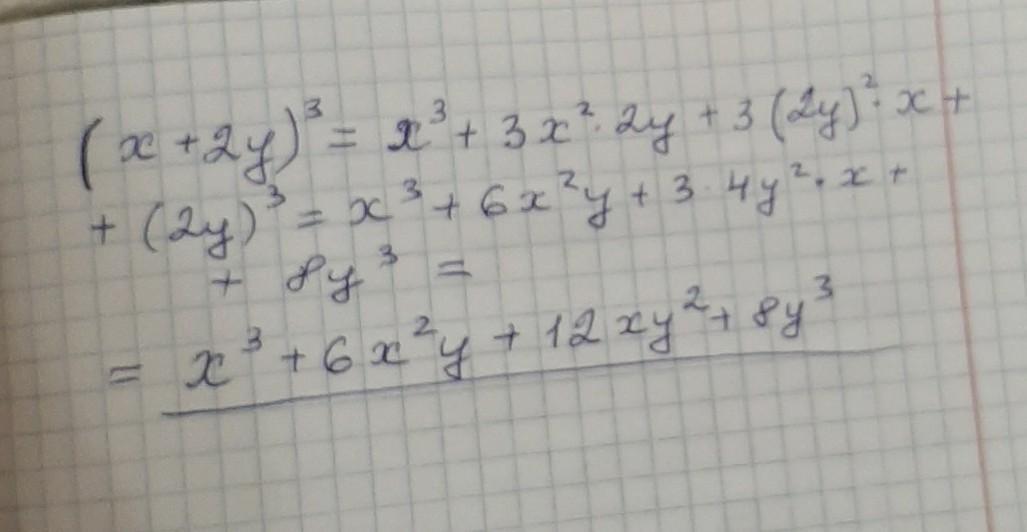 (x+2y)³ = x³ + 3x²·2y + 3(2y)²·x +
+ (2y)³ = x³ + 6x²y + 3·4y²·x +
+ 8y³ =
= x³ + 6x²y + 12xy² + 8y³